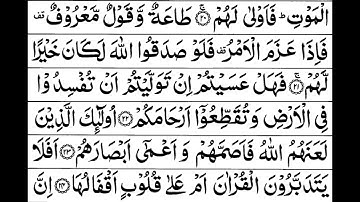 الْمَوْتِ ؕ فَاَوْلٰى لَهُمْ ۚ﴿۲۰﴾ طَاعَةٌ وَّقَوْلٌ مَّعْرُوْفٌ ۟
فَاِذَا عَزَمَ الْاَمْرُ ۟ فَلَوْ صَدَقُوا اللّٰهَ لَكَانَ خَيْرًا
لَّهُمْ ۚ﴿۲۱﴾ فَهَلْ عَسَيْتُمْ اِنْ تَوَلَّيْتُمْ اَنْ تُفْسِدُوْا
فِى الْاَرْضِ وَتُقَطِّعُوْۤا اَرْحَامَكُمْ ﴿۲۲﴾ اُولٰٓئِكَ الَّذِيْنَ
لَعَنَهُمُ اللّٰهُ فَاَصَمَّهُمْ وَاَعْمٰٓى اَبْصَارَهُمْ ﴿۲۳﴾ اَفَلَا
يَتَدَبَّرُوْنَ الْقُرْاٰنَ اَمْ عَلٰى قُلُوْبٍ اَقْفَالُهَا ﴿۲۴﴾ اِنَّ